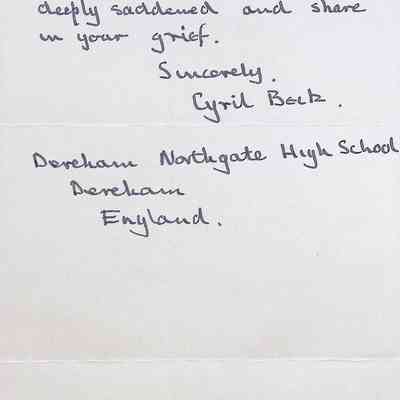 deeply saddened and share
in your grief.
Sincerely.
Cyril Beck.
Dereham Northgate High School
Dereham
England.